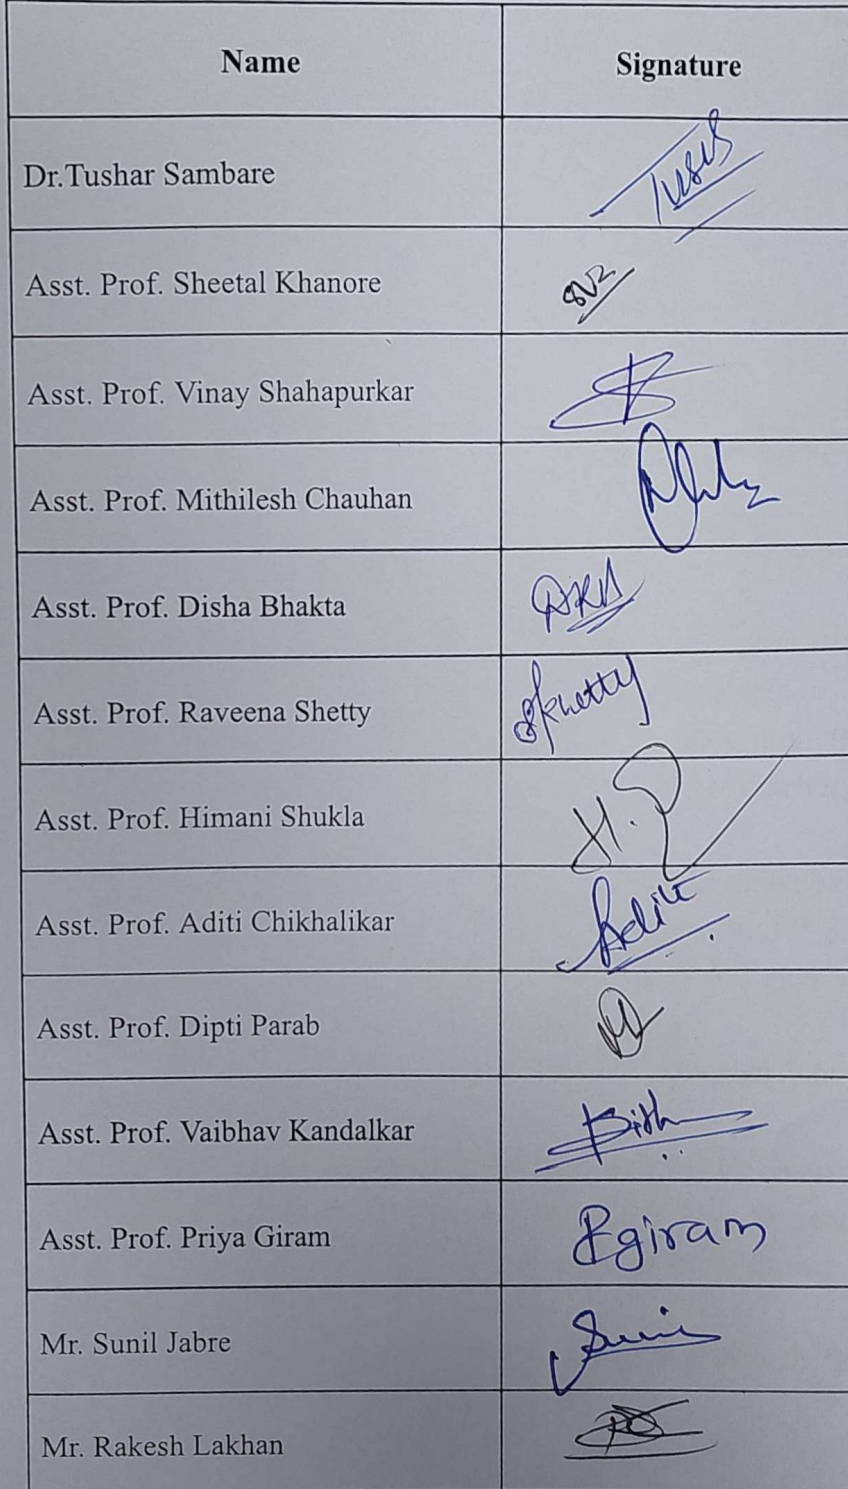 Name Signature
Dr.Tushar Sambare
Asst. Prof. Sheetal Khanore
Asst. Prof. Vinay Shahapurkar
Asst. Prof. Mithilesh Chauhan
Asst. Prof. Disha Bhakta
Asst. Prof. Raveena Shetty
Asst. Prof. Himani Shukla
Asst. Prof. Aditi Chikhalikar Aditi
Asst. Prof. Dipti Parab
Asst. Prof. Vaibhav Kandalkar
Asst. Prof. Priya Giram Pgiram
Mr. Sunil Jabre
Mr. Rakesh Lakhan